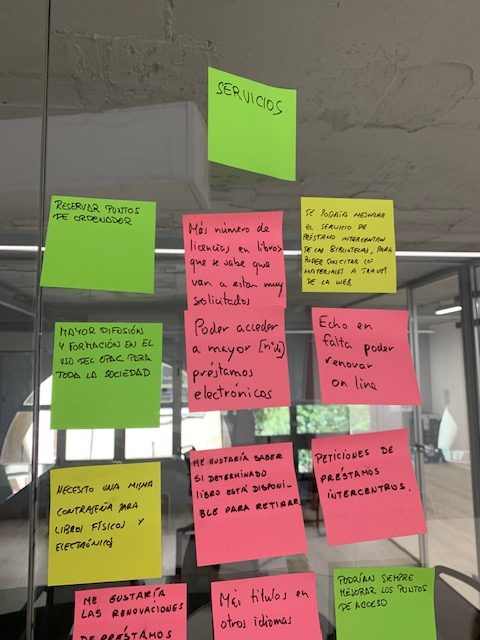 SERVICIOS
RESERVAR PUNTOS
DE ORDENADOR
Más número de
licencias en libros
que se sabe que
van a estar muy
solicitados
SE PODRÍA MEJORAR
EL SERVICIO DE
PRÉSTAMO INTERCENTAM
DE LAS BIBLIOTECAS, PARA
PODER SOLICITAR LOS
MATERIALES A TRAVÉS
DE LA WEB
MAYOR DIFUSIÓN
Y FORMACIÓN EN EL
USO DEL OPAC PARA
TODA LA SOCIEDAD
Poder acceder
a mayor [nº de]
préstamos
electrónicos
Echo en
falta poder
renovar
on line
NECESITO UNA MISMA
CONTRASEÑA PARA
LIBROS FÍSICOS Y
ELECTRÓNICOS
ME GUSTARÍA SABER
SI DETERMINADO
LIBRO ESTÁ DISPONI-
BLE PARA RETIRAR.
PETICIONES DE
PRÉSTAMOS
INTERCENTROS.
ME GUSTARÍA
LAS RENOVACIONES
DE PRÉSTAMOS
Más títulos en
otros idiomas
PODRÍAN SIEMPRE
MEJORAR LOS PUNTOS
DE ACCESO